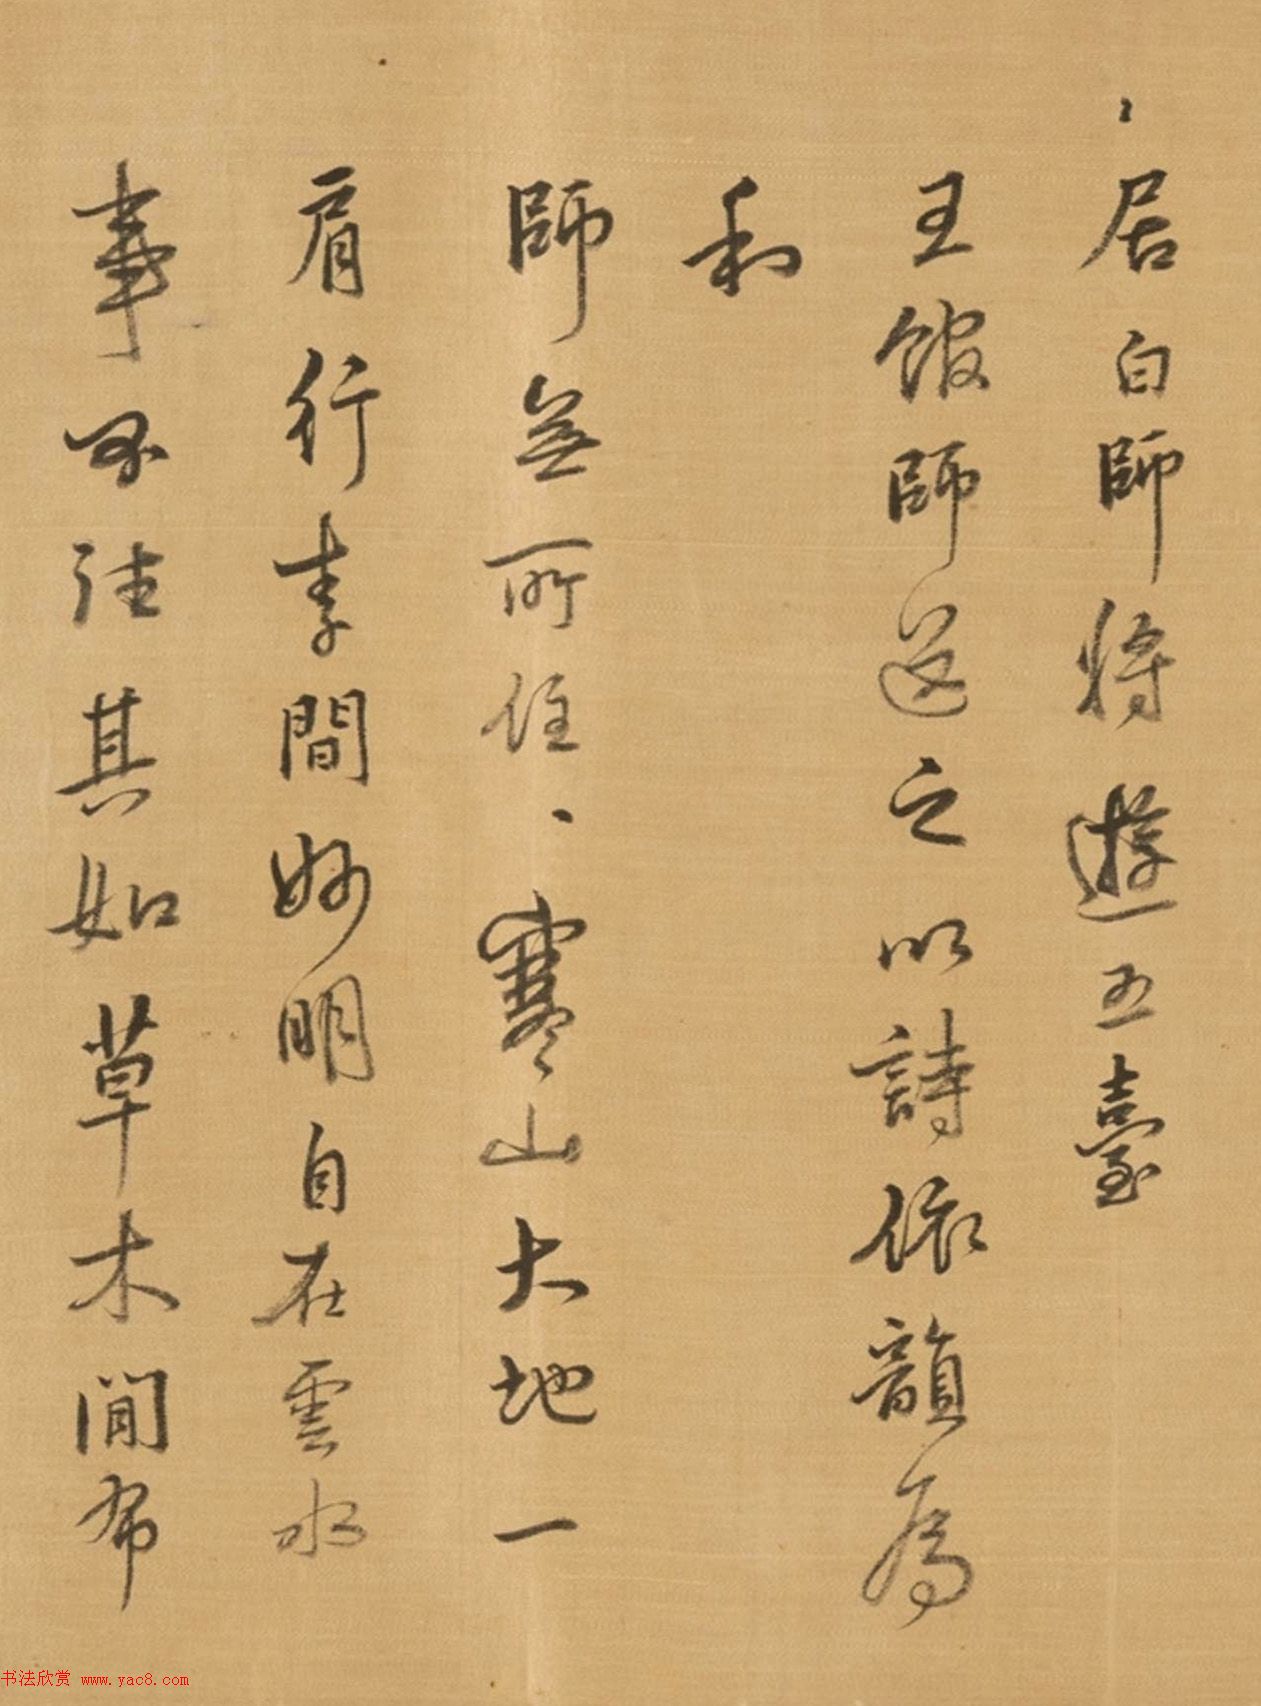 居白師將遊五臺
王館師送之以詩依韻為
和
師無所住、寒山大地一
肩行李間妙明自在雲水
事其如草木間布
书法欣赏 www.yac8.com